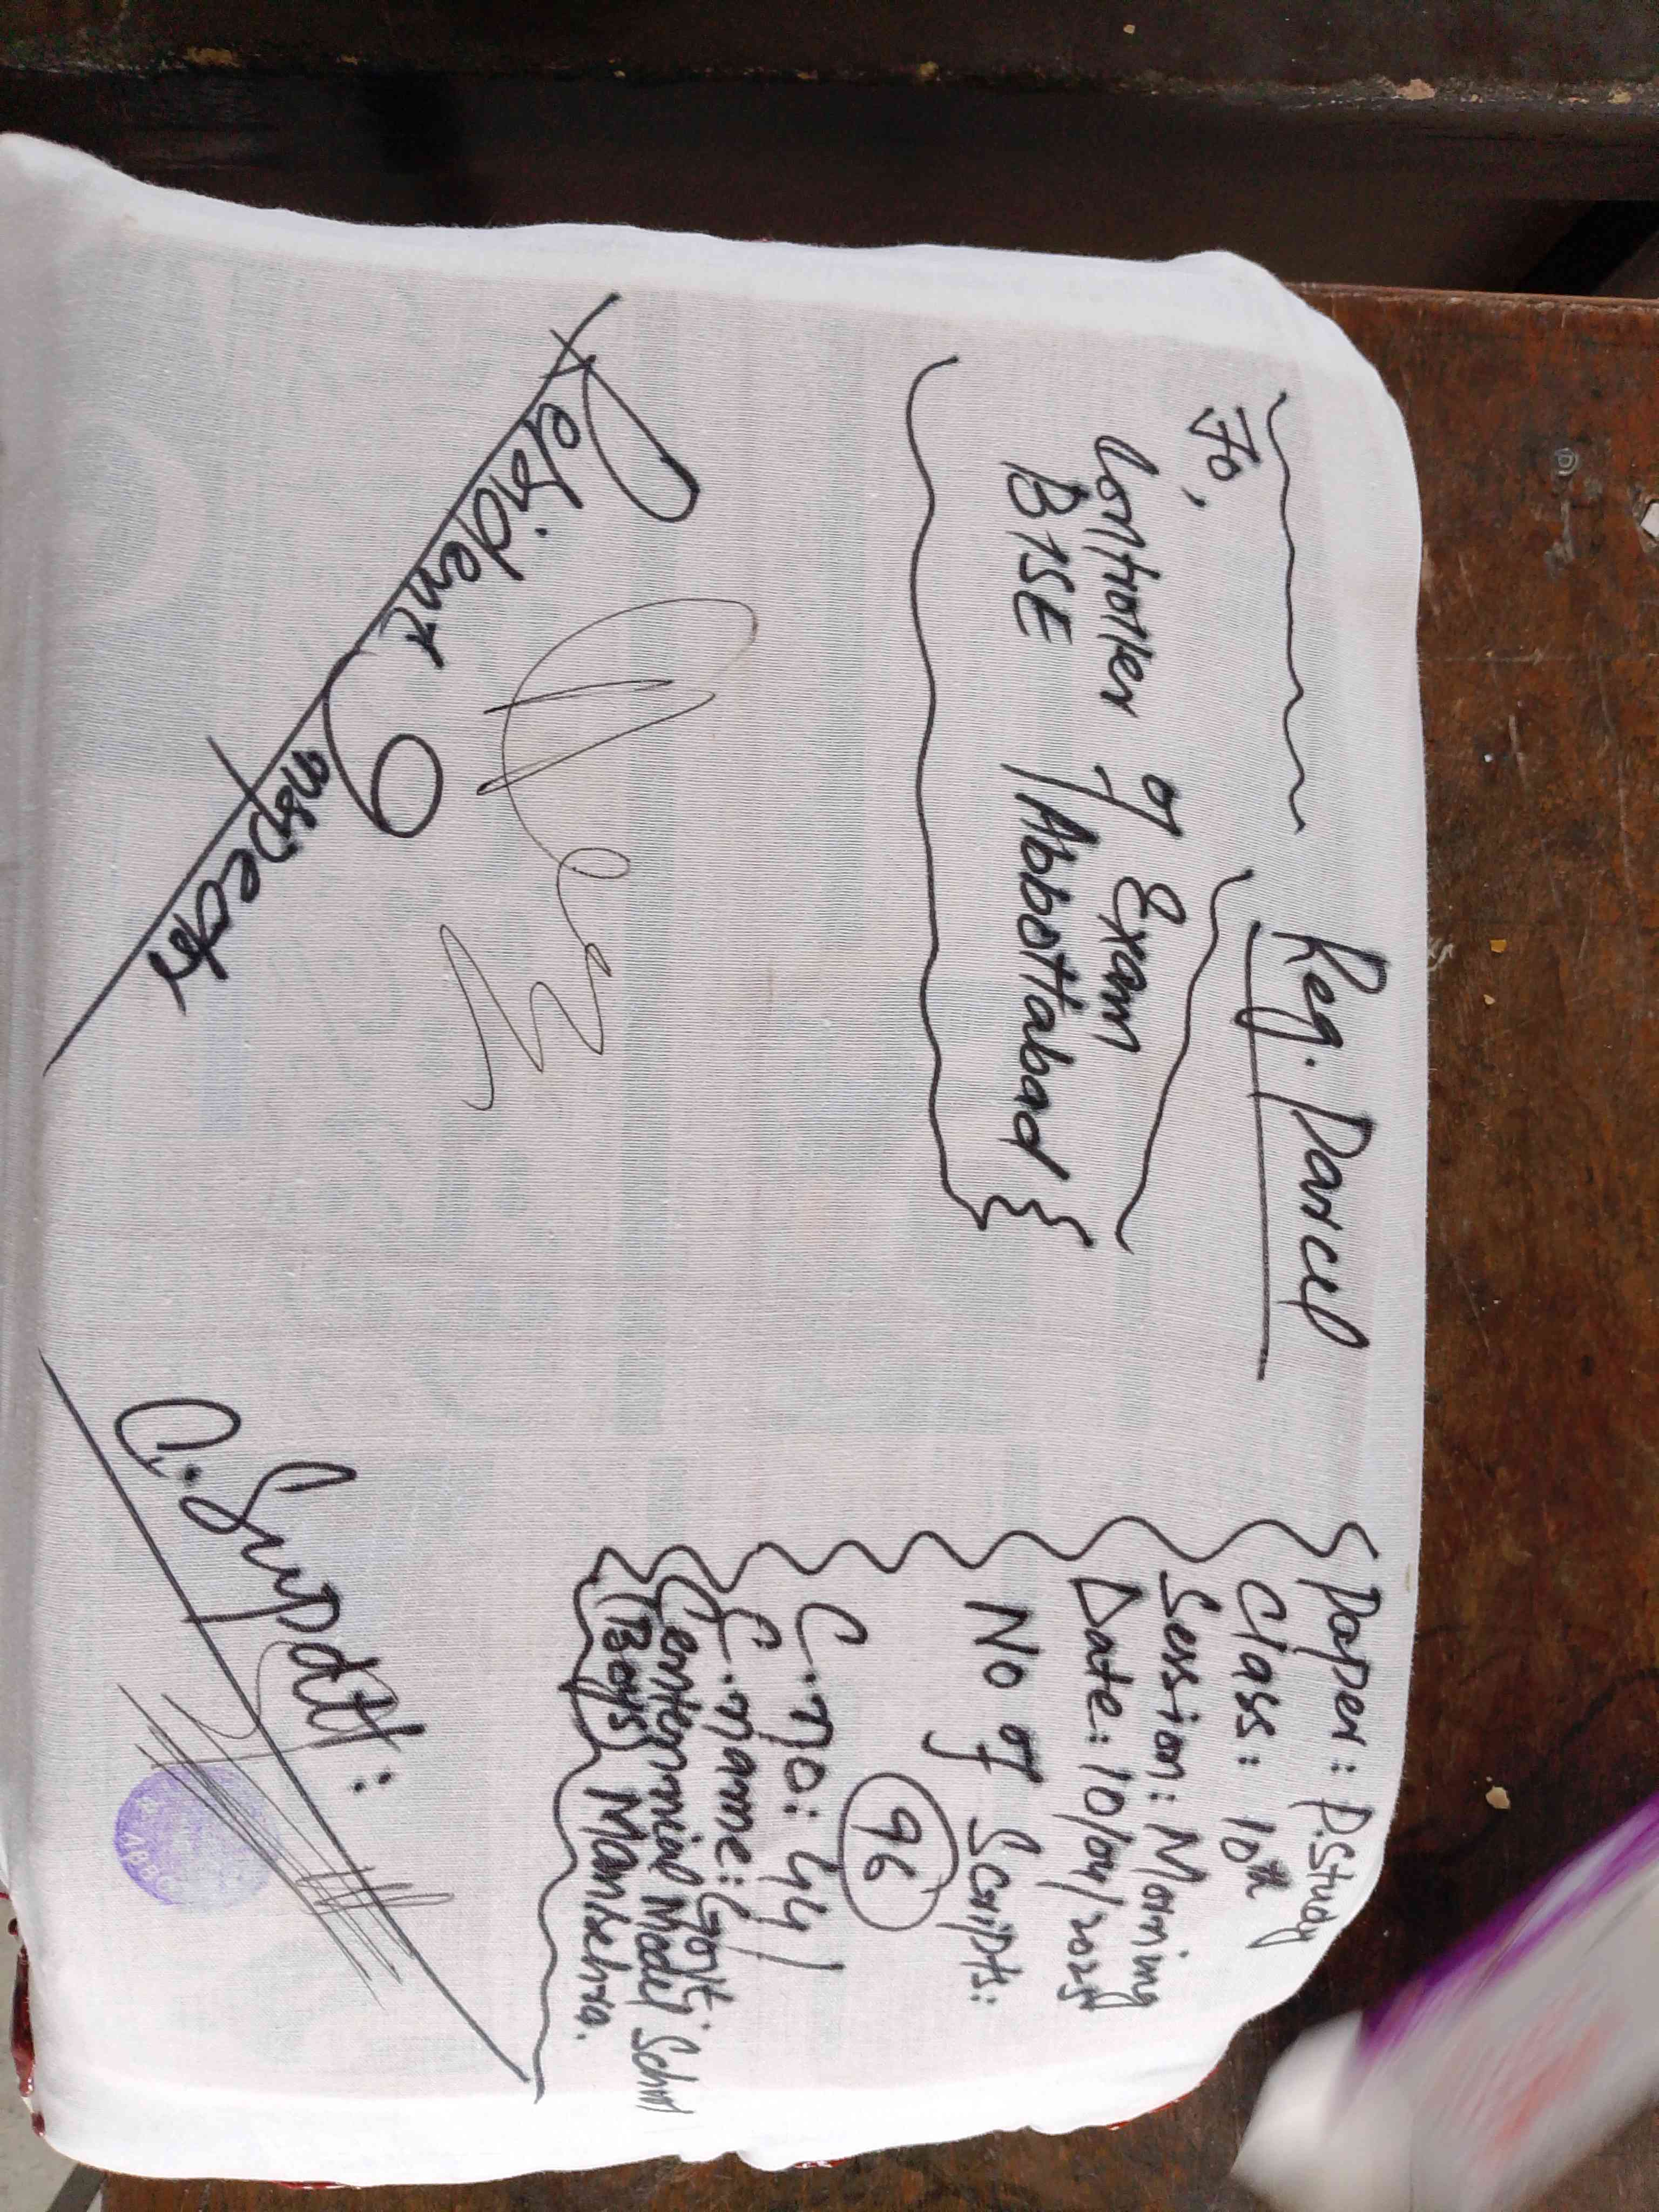 Reg. Parcel
To,
Controller of Exam
BISE Abbottabad
Paper: P.Study
Class: 10th
Session: Morning
Date: 10/04/2025
No of Scripts:
96
C.no: 441
C.name: Govt.
Centennial Model School
(Boys) Mansehra.
Resident Inspector
C.Supdtt: